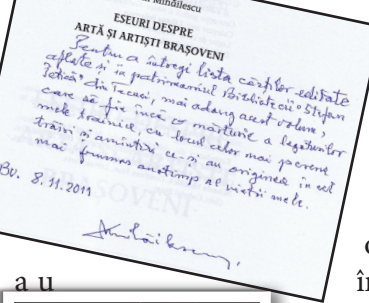 Mihăilescu
ESEURI DESPRE
ARTĂ ȘI ARTIȘTI BRAȘOVENI
Pentru a întregi lista cărților editate
aflate și în patrimoniul Bibliotecii "Ștefan
Petică" din Tecuci, mai adaug acest volum,
care să fie încă o mărturie a legăturilor
mele trainice, cu locul celor mai perene
trăiri și amintiri ce-și au originea în cel
mai frumos anotimp al vieții mele.
Bv. 8.11.2011
a u